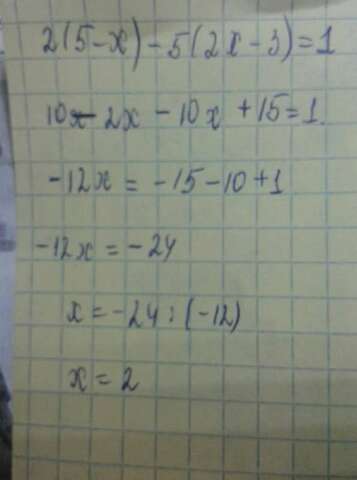 2(5-x)-5(2x-3)=1
10-2x-10x+15=1.
-12x=-15-10+1
-12x=-24
x=-24:(-12)
x=2